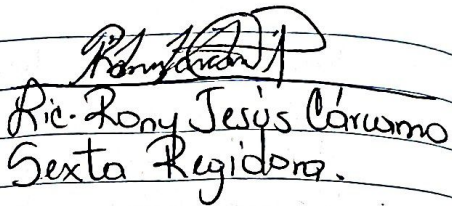 Lic. Rony Jesús Cárcamo
Sexta Regidora.